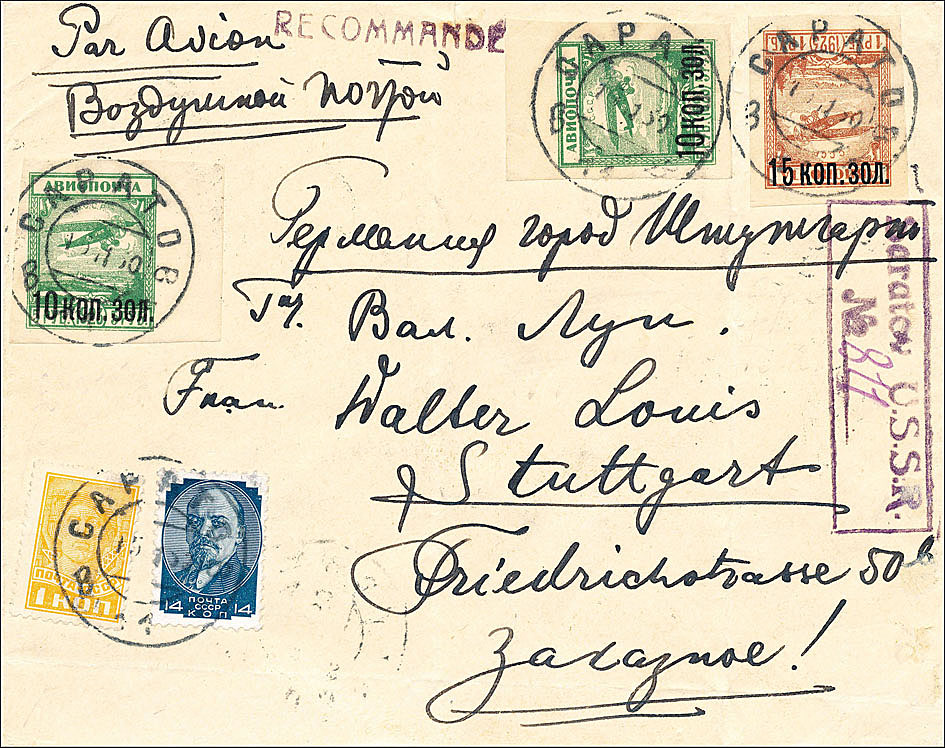 Par Avion
RECOMMANDÉ
Воздушной почтой
САРАТОВ
АВИОПОЧТА
10 КОП. ЗОЛ.
САРАТОВ
1 РУБ. 1923 1 РУБ.
15 КОП. ЗОЛ.
САРАТОВ
АВИОПОЧТА
10 КОП. ЗОЛ.
Германия город Штутгарт
Вал. Луи.
Walter Louis
Stuttgart
Friedrichstrasse 50
Заказное!
Saratov U.S.S.R.
№ 811
САР
1 КОП
14 ПОЧТА 14
СССР
КОП